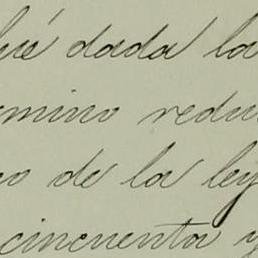 fué dada la
mino redu
o de la ley
cincuenta y